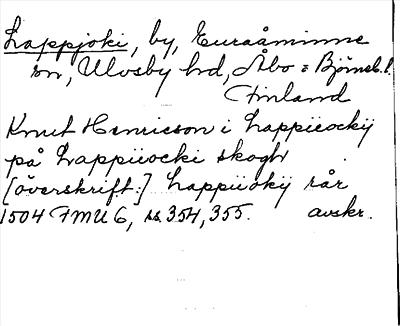 Lappjoki, by, Euraåminne
sn, Ulvsby hd, Åbo = Björneb. l.
Finland
Knut Henricsson i Lappieockij
på Lappiiocki skogh
[överskrift:] Lappiiokij rår
1504 FMU 6, ss. 354, 355. avskr.